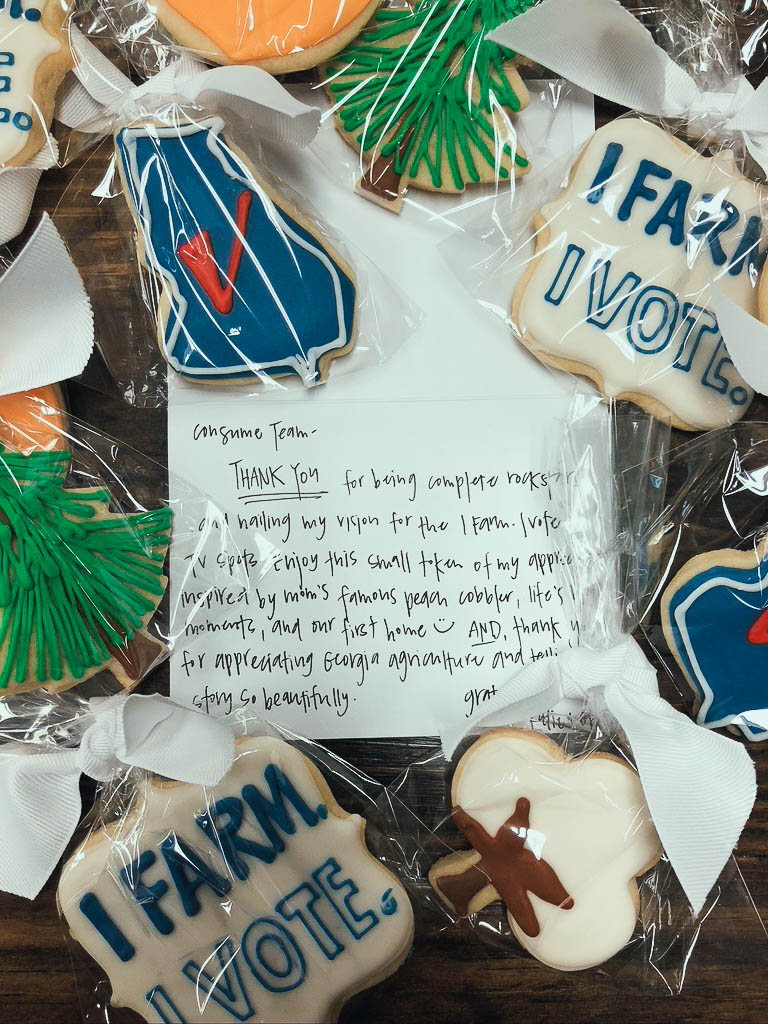 I FARM.
I VOTE.
V
Consume Team-
THANK YOU for being complete
and nailing my vision for the I Farm. I Vote
TV spots. Enjoy this small token of my
inspired by mom's famous peach cobbler, life's
moments, and our first home ☺ AND, thank
for appreciating Georgia agriculture and
story so beautifully.
I FARM.
I VOTE.